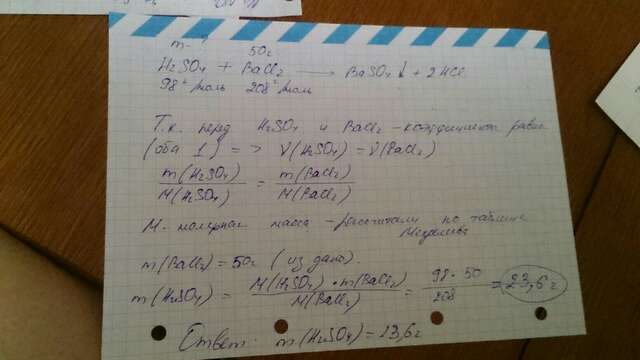 m - ? 50г
H2SO4 + BaCl2 → BaSO4↓ + 2HCl
98 г/моль 208 г/моль
Т.к. перед H2SO4 и BaCl2 - коэффициенты равны
(оба 1) => ν(H2SO4) = ν(BaCl2)
m(H2SO4) / M(H2SO4) = m(BaCl2) / M(BaCl2)
M - молярная масса - рассчитали по таблице
Менделеева
m(BaCl2) = 50г (из дано).
m(H2SO4) = M(H2SO4) • m(BaCl2) / M(BaCl2) = 98 • 50 / 208 = 23,6г
Ответ: m(H2SO4) = 23,6г